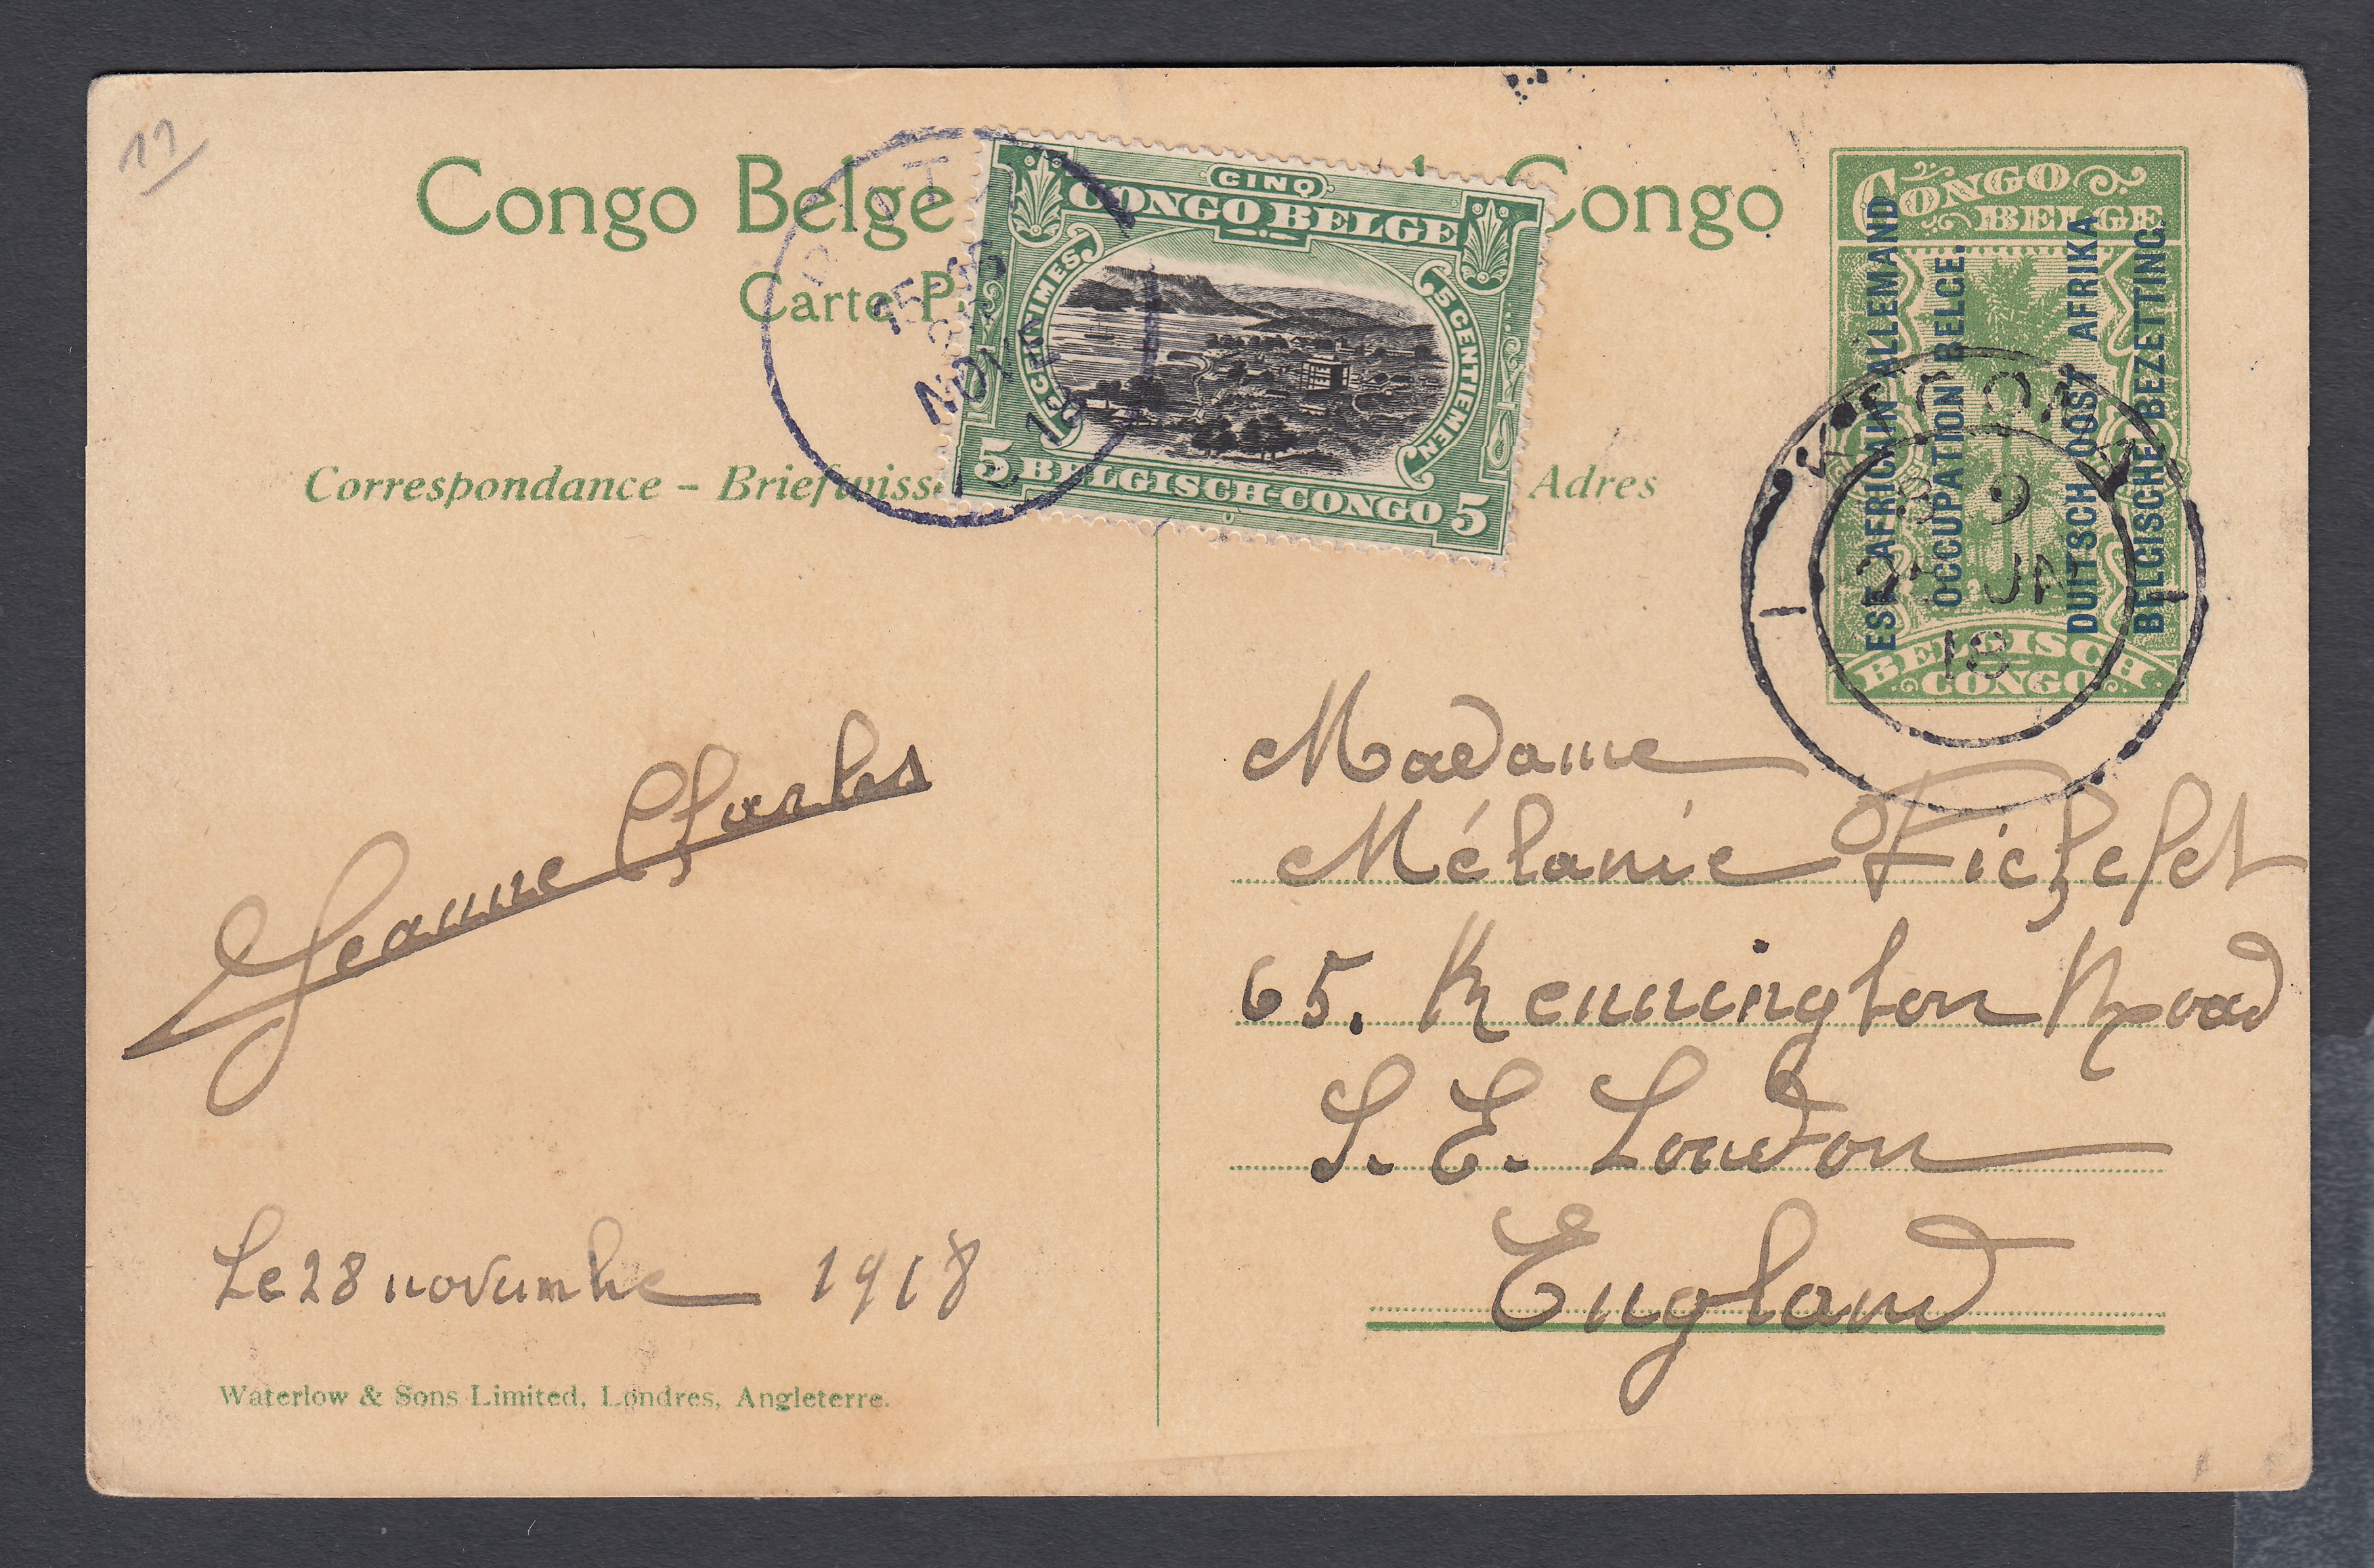 11
Congo Belge
Congo
Carte P
Correspondance – Briefwiss
Adres
CINQ
CONGO BELGE
CENTIMES
5 CENTIEMEN
5 BELGISCH-CONGO 5
15-
NOV
18
CONGO
BELGE
EST AFRICAIN ALLEMAND
OCCUPATION BELGE.
DUITSCH OOST AFRIKA
BELGISCHE BEZETTING.
BELGISCH
CONGO
KIGOMA
9
JA
18
Jeanne Charles
Le 28 novembre 1918
Madame
Mélanie Fichefet
65. Kennington Road
S. E. London
England
Waterlow & Sons Limited, Londres, Angleterre.